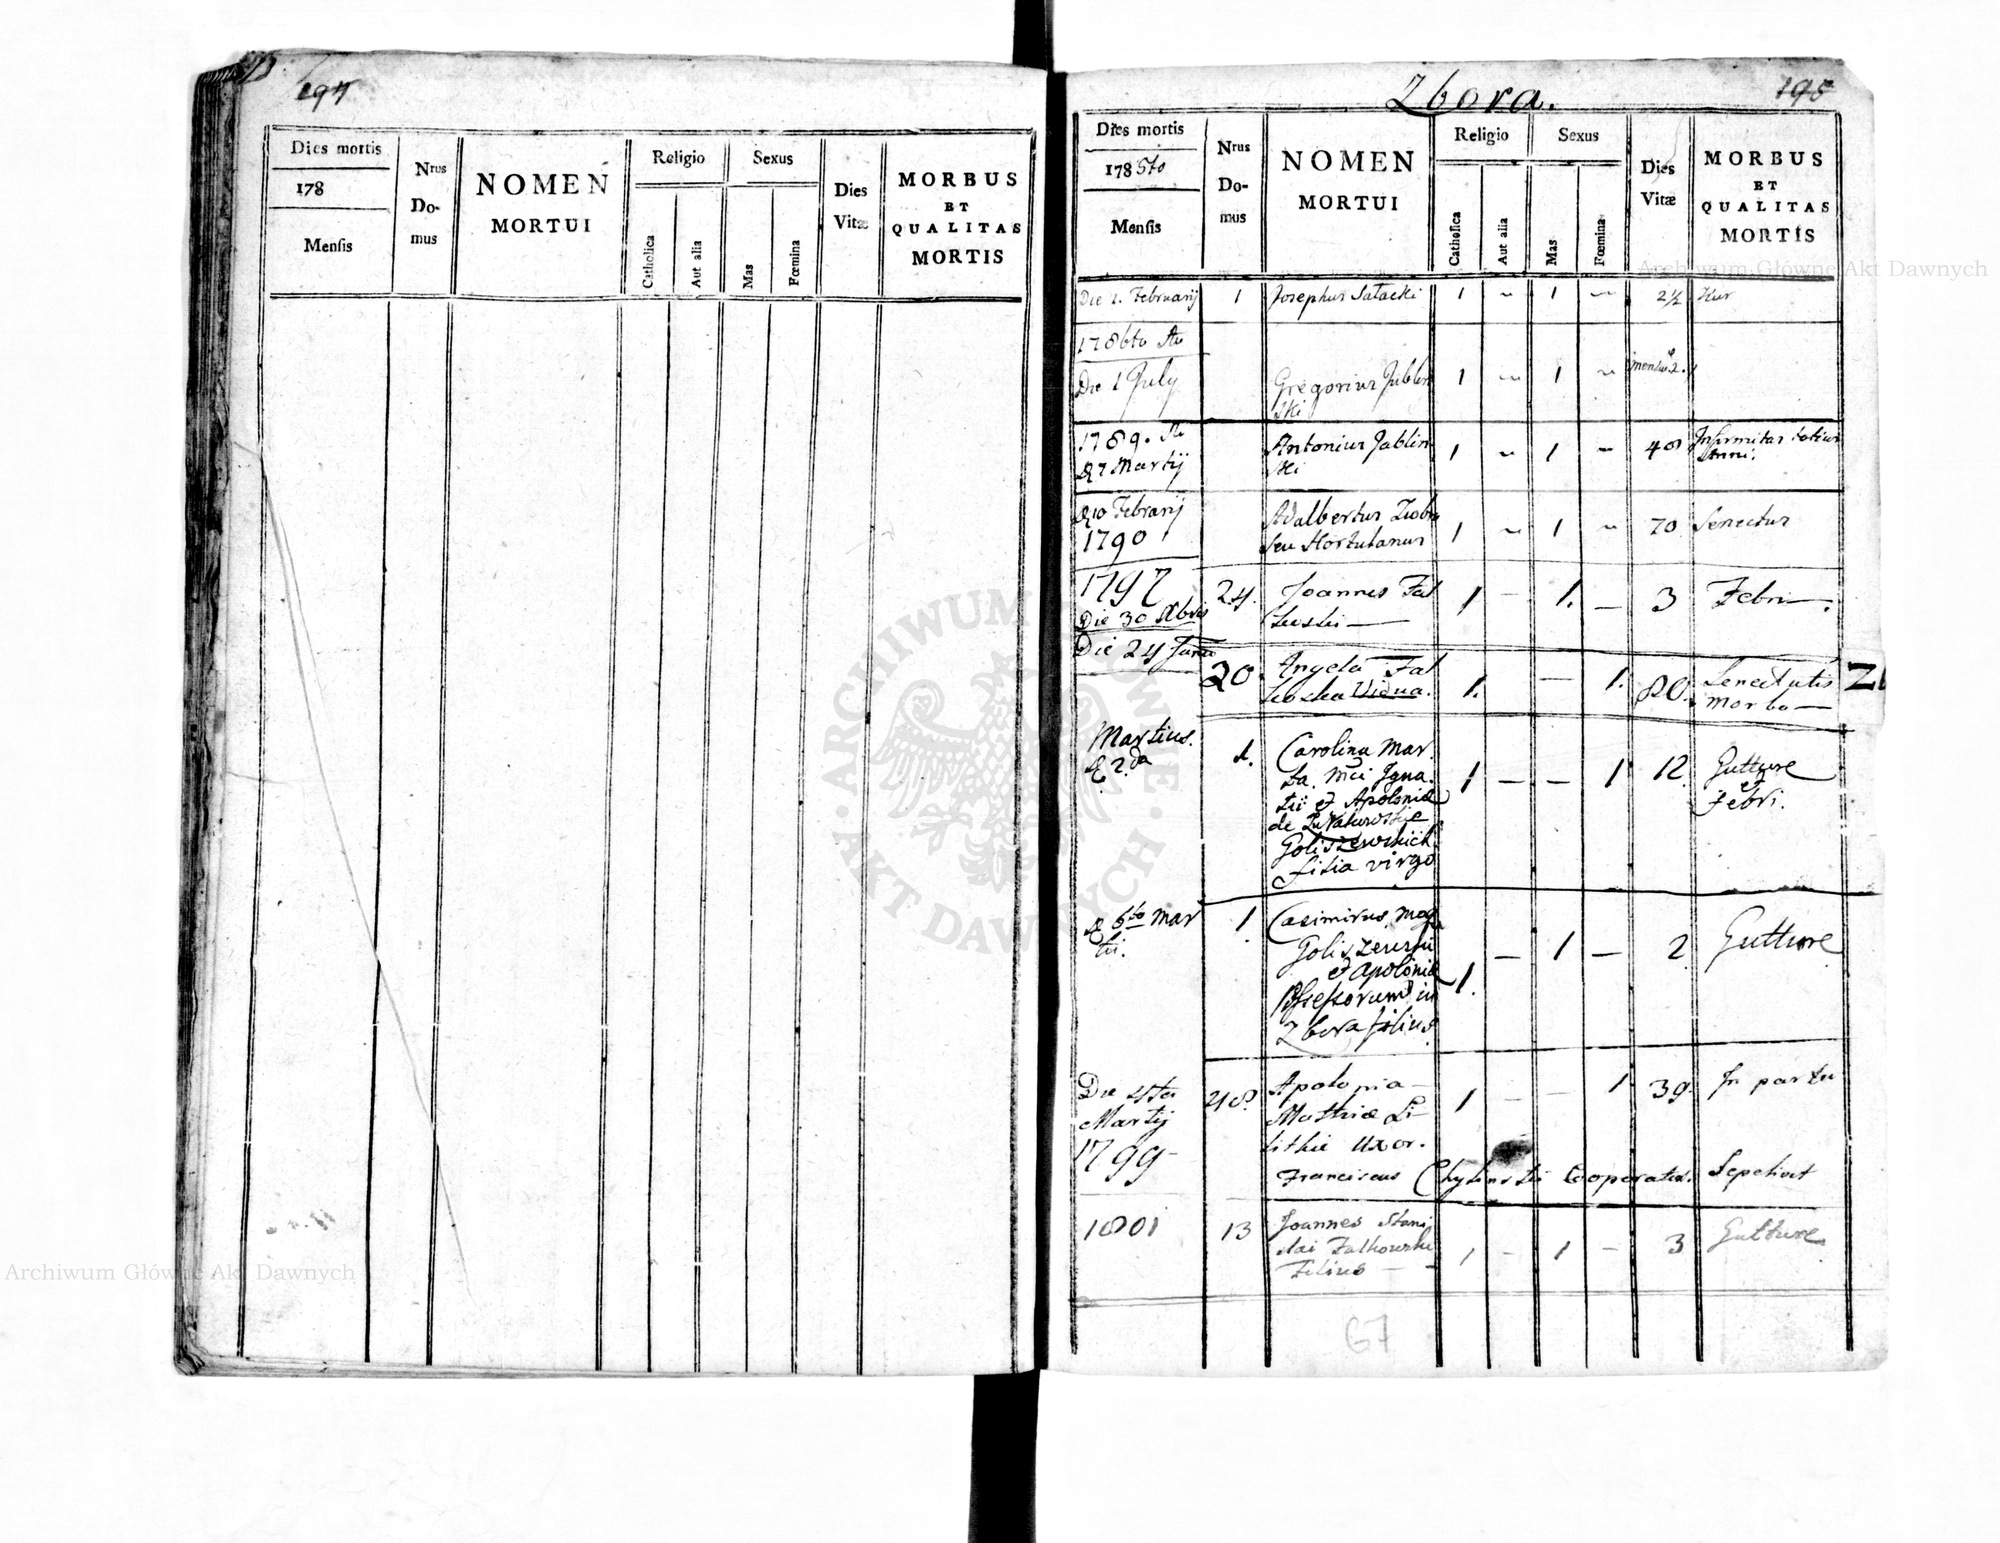 194
Dies mortis
178
Mensis
Nrus
Do-
mus
NOMEN
MORTUI
Religio
Catholica
Aut alia
Sexus
Mas
Fœmina
Dies
Vitæ
MORBUS
ET
QUALITAS
MORTIS
Zbora.
195
Dies mortis
178 5to
Mensis
Nrus
Do-
mus
NOMEN
MORTUI
Religio
Catholica
Aut alia
Sexus
Mas
Fœmina
Dies
Vitæ
MORBUS
ET
QUALITAS
MORTIS
Die 1. Februarij 1 Josephus Sałacki 1 ~ 1 ~ 2½
1786to
Die 1 July Gregorius Jablin 1 ~ 1 ~ 2.
ski
1789. Antonius Jablin 1 ~ 1 ~ 48 Infirmitas totius
7 Martij ski Anni.
10 Febrarij Adalbertus 1 ~ 1 ~ 70 Senectus
1790 seu Hortulanus
1797 24. Joannes Fal 1 – 1. – 3 Febri.
Die 30 Xbris
Die 24
20. Angela Fal 1. — 1. 80. Senectutis
Vidua. morbo
Martius. 1. Carolina Mar 1 — — 1 12 Gutture
2da ta. et
tii et Apoloniæ Febri.
de
Goliszewskich
filia virgo
6to Mar 1 Casimirus 1. — 1 — 2 Gutture
tii. Goliszewski
et Apoloniæ
in
Zbora filius.
Die 4ta 48. Apolonia 1 — — 1 39. In partu
Martij Mathiæ
1799 uxor.
Franciscus Chylinski Cooperator. Sepelivit
1801 13 Joannes Stanis 1 – 1 – 3 Gutture
lai Falkowski
Filius
67
Archiwum Główne Akt Dawnych
ARCHIWUM GŁÓWNE AKT DAWNYCH
Archiwum Główne Akt Dawnych